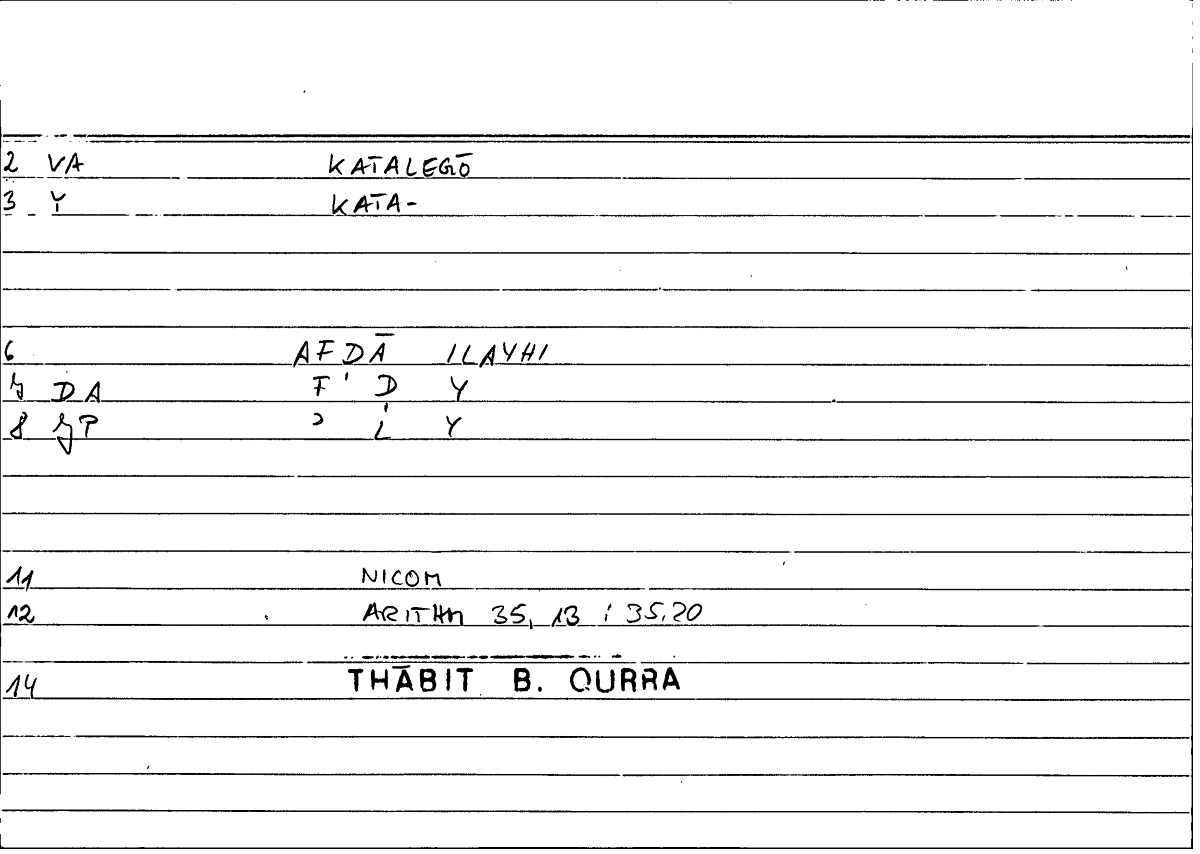 2 VA KATALEGŌ
3 Y KATA-
6 AFDĀ ILAYHI
DA F ' D Y
8 Y
11 NICOM
12 ARITHM 35, 13 ; 35,20
14 THĀBIT B. QURRA